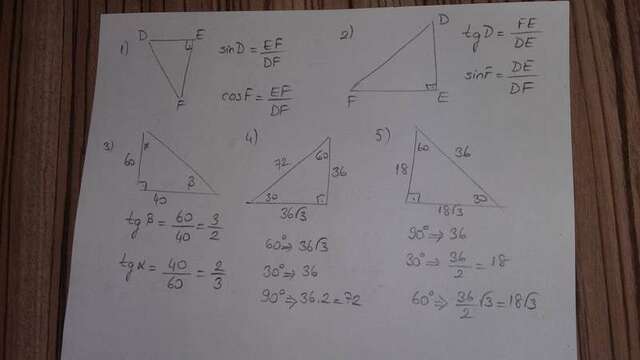 1)
D E
F
sinD = EF/DF
cosF = EF/DF
2)
D
F E
tgD = FE/DE
sinF = DE/DF
3)
α
60
β
40
tgβ = 60/40 = 3/2
tgα = 40/60 = 2/3
4)
60
72 36
30
36√3
60° ⇒ 36√3
30° ⇒ 36
90° ⇒ 36.2 = 72
5)
60
18 36
30
18√3
90° ⇒ 36
30° ⇒ 36/2 = 18
60° ⇒ 36/2 √3 = 18√3